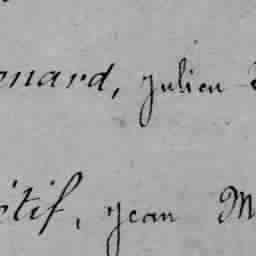 onard, julien
itif, jean M